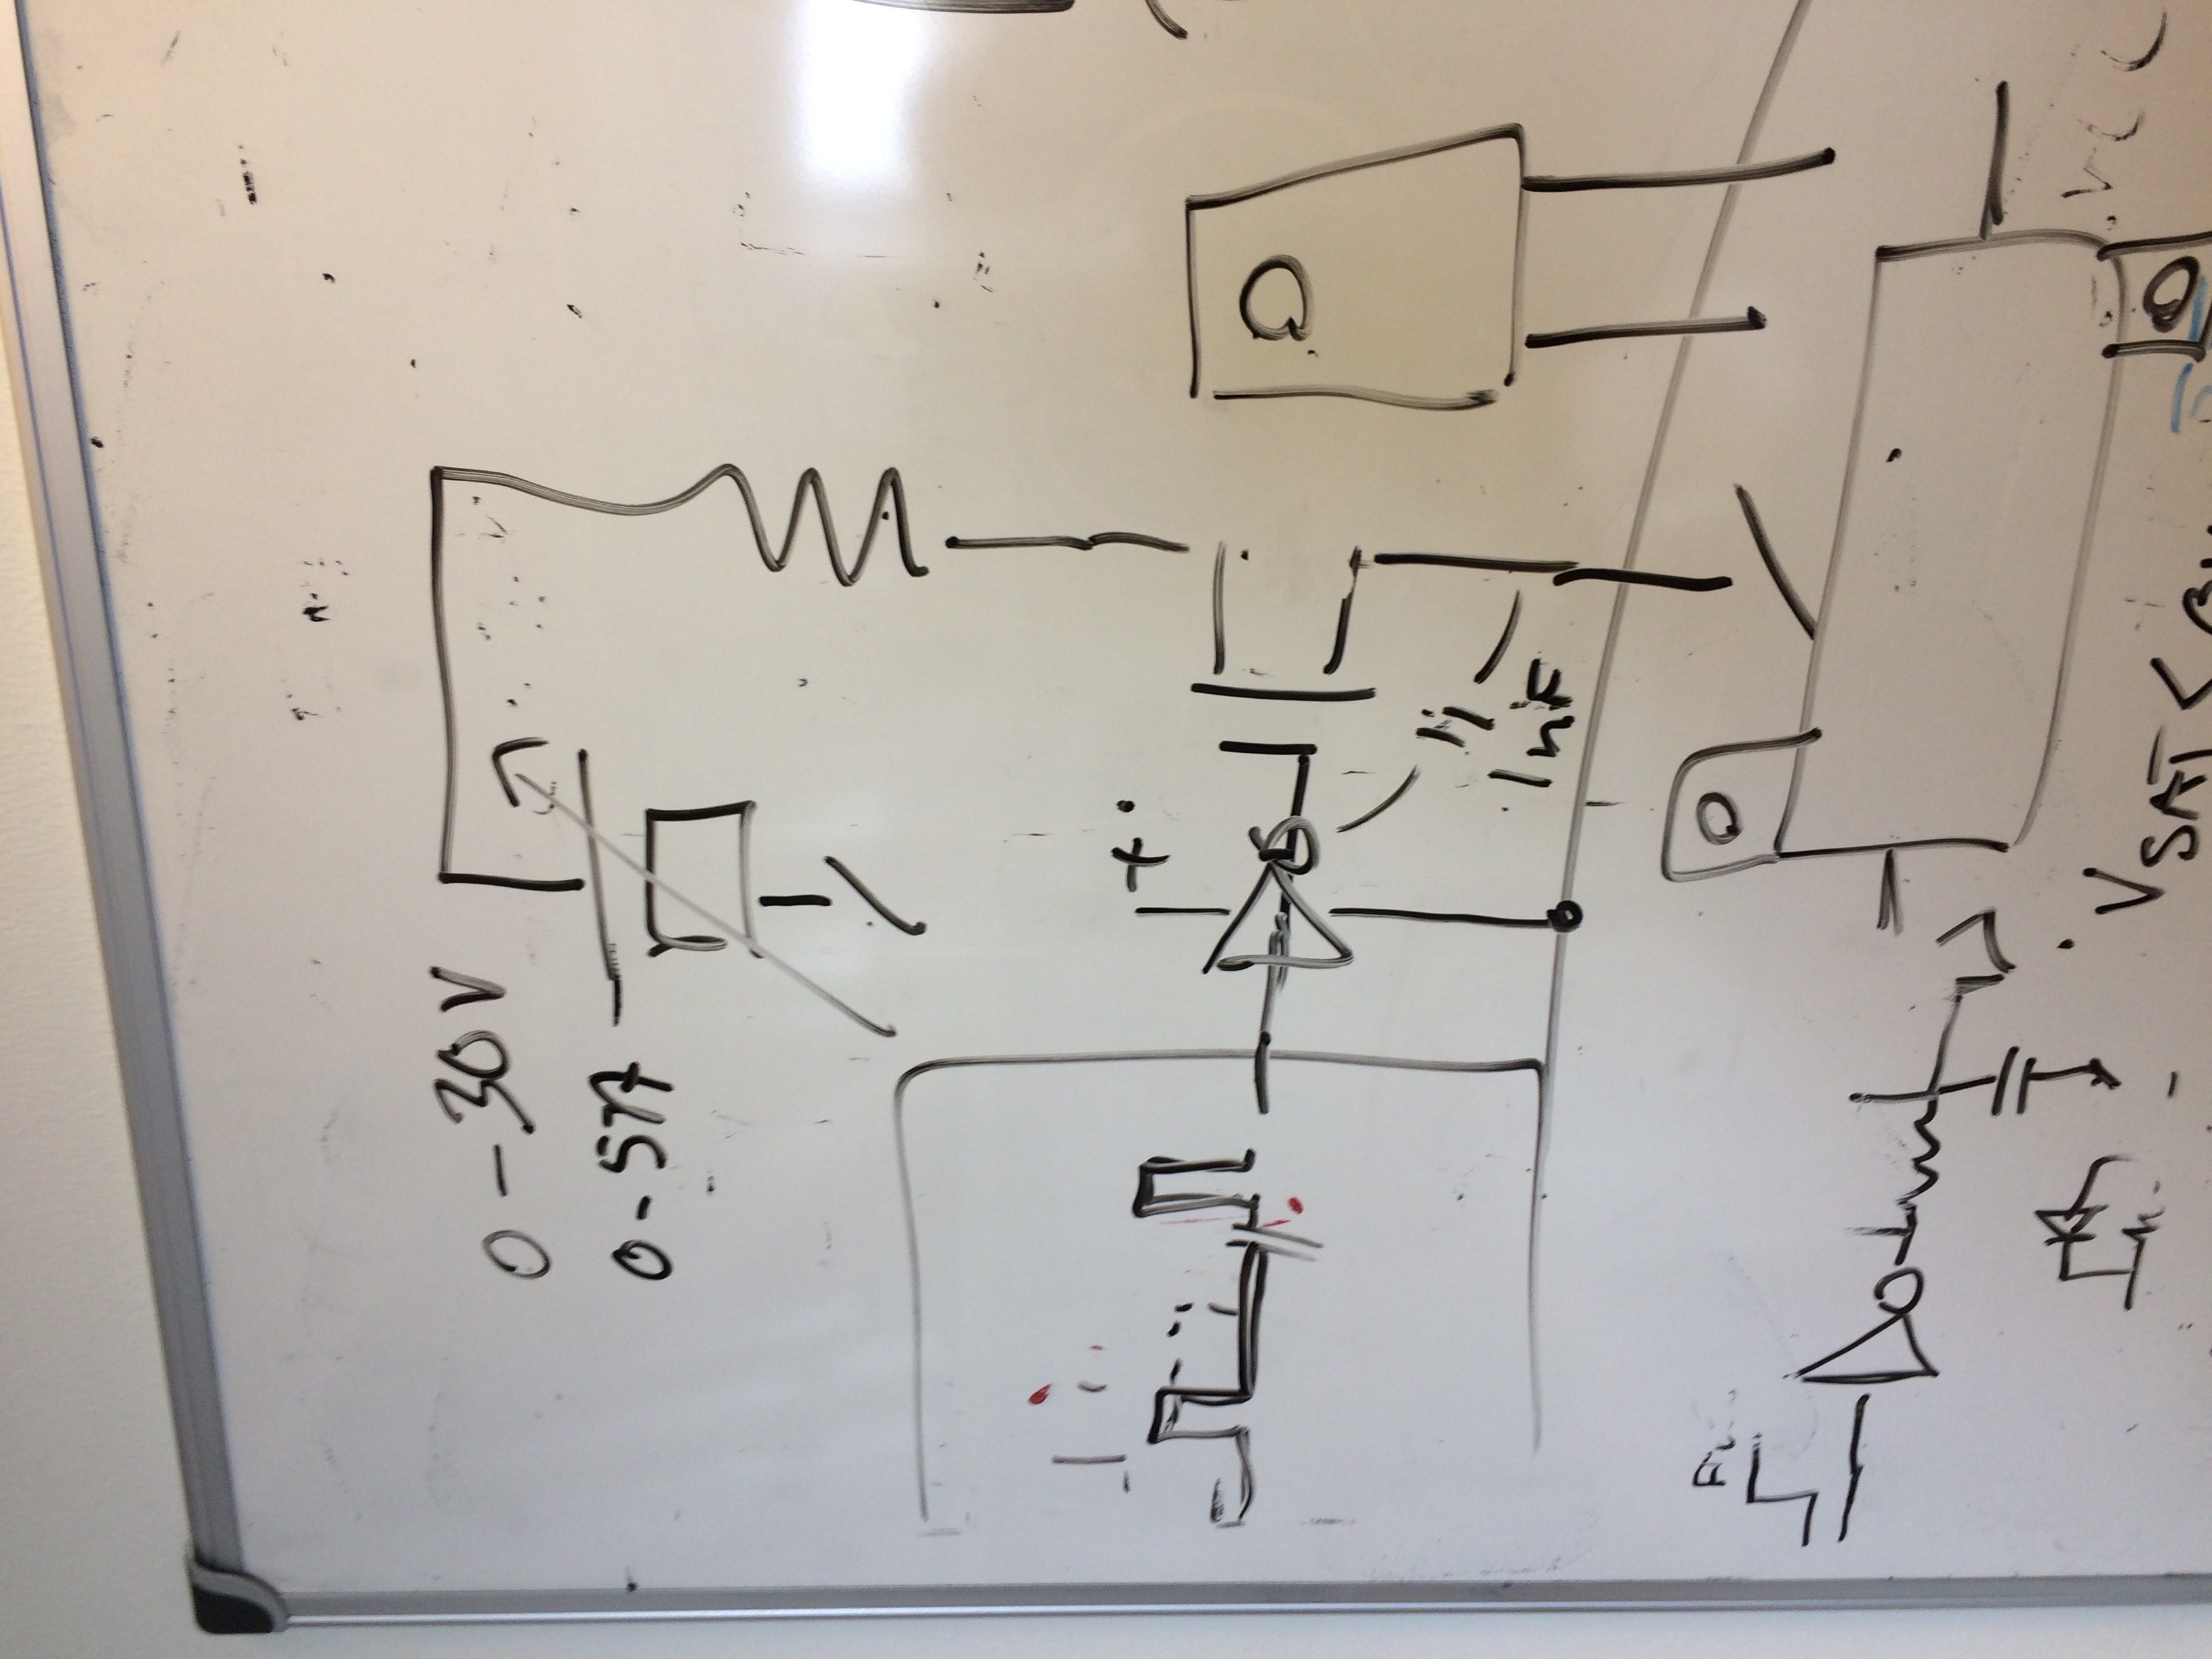 0 - 30 V
0 - 5A
+
1nF
VCC
VSAT <